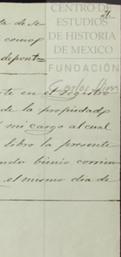 CENTRO DE
ESTUDIOS
DE HISTORIA
DE MEXICO
FUNDACIÓN
Carlos Slim
ta de se
como
deponto
te en el registro
de la propiedad
mi cargo al cual
libro la presente
ando bienio corrien
el mismo dia de